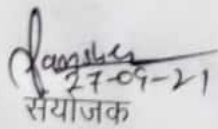 27-09-21
संयोजक